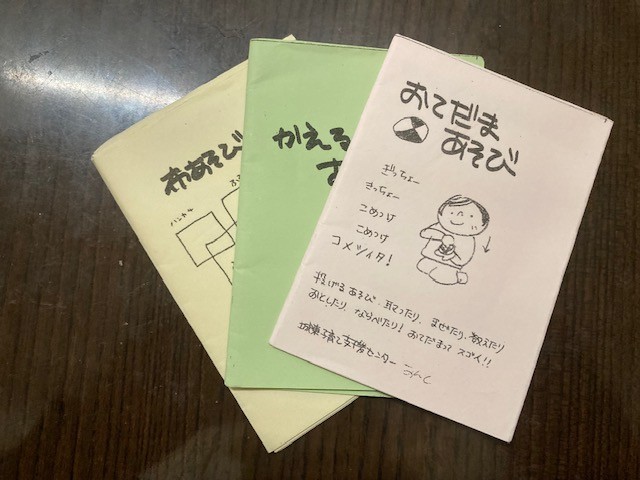 おてだま
あそび
ぎっちょー
さっちょー
こめつけ
こめつけ
コメツイタ!
投げるあそび、耳マったり、まぜたり、数えたり
おとしたり、ならべたり! おてだまって スゴイ!!
子育て支援センター
かえる
布あそび
ハンカチ